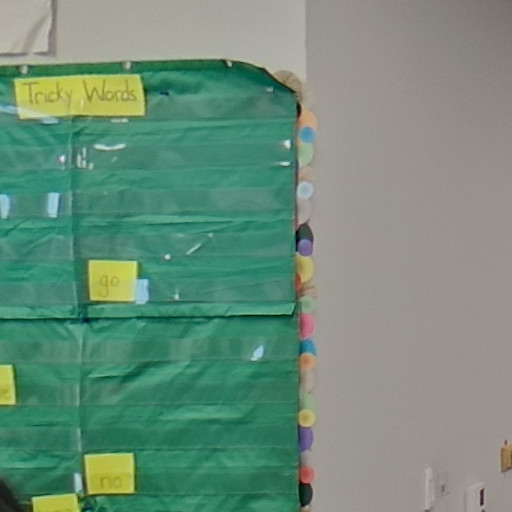 Tricky Words
go
no